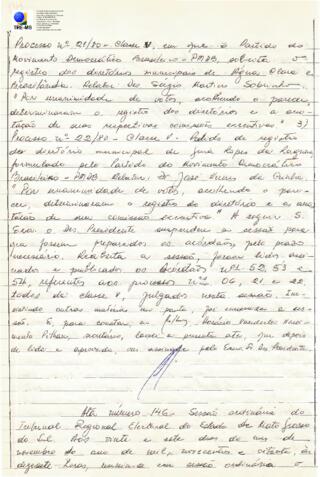 TRE-MS
Processo nº 21/80 - Classe V, em que o Partido do
Movimento Democrático Brasileiro - PMDB, solicita o
registro dos diretórios municipais de Água Clara e
Brasilândia. Relator: Des. Sérgio Martins Sobrinho.
"Por unanimidade de votos, acolhendo o parecer,
determinaram o registro dos diretórios e a ano-
tação de suas respectivas comissões executivas". 3)
Processo nº 22/80 - Classe V - Pedido de registro
do diretório municipal de
formulado pelo Partido do Movimento Democrático
Brasileiro - PMDB. Relator: Dr. José
"Por unanimidade de votos, acolhendo o pare-
cer, determinaram o registro do diretório e a ano-
tação de sua comissão executiva". A seguir S.
Exa. o Des. Presidente suspendeu a sessão para
que fossem preparados os acórdãos, pelo prazo
necessário. Reaberta a sessão, foram lidos, assi-
nados e publicados os Acórdãos nºs 52, 53 e
54, referentes aos processos nºs 06, 21 e 22,
todos de classe V, julgados nesta sessão. Ine-
xistindo outras matérias em pauta, foi encerrada a ses-
são. E, para constar, eu
secretário, lavrei a presente ata, que depois
de lida e aprovada, vai assinada pelo Exmo. Sr. Des. Presidente
Ata número 146 - Sessão ordinária do
Tribunal Regional Eleitoral do Estado de Mato Grosso
do Sul. Aos vinte e sete dias do mês de
novembro do ano de mil, novecentos e oitenta, às
dezessete horas, reuniu-se em sessão ordinária o